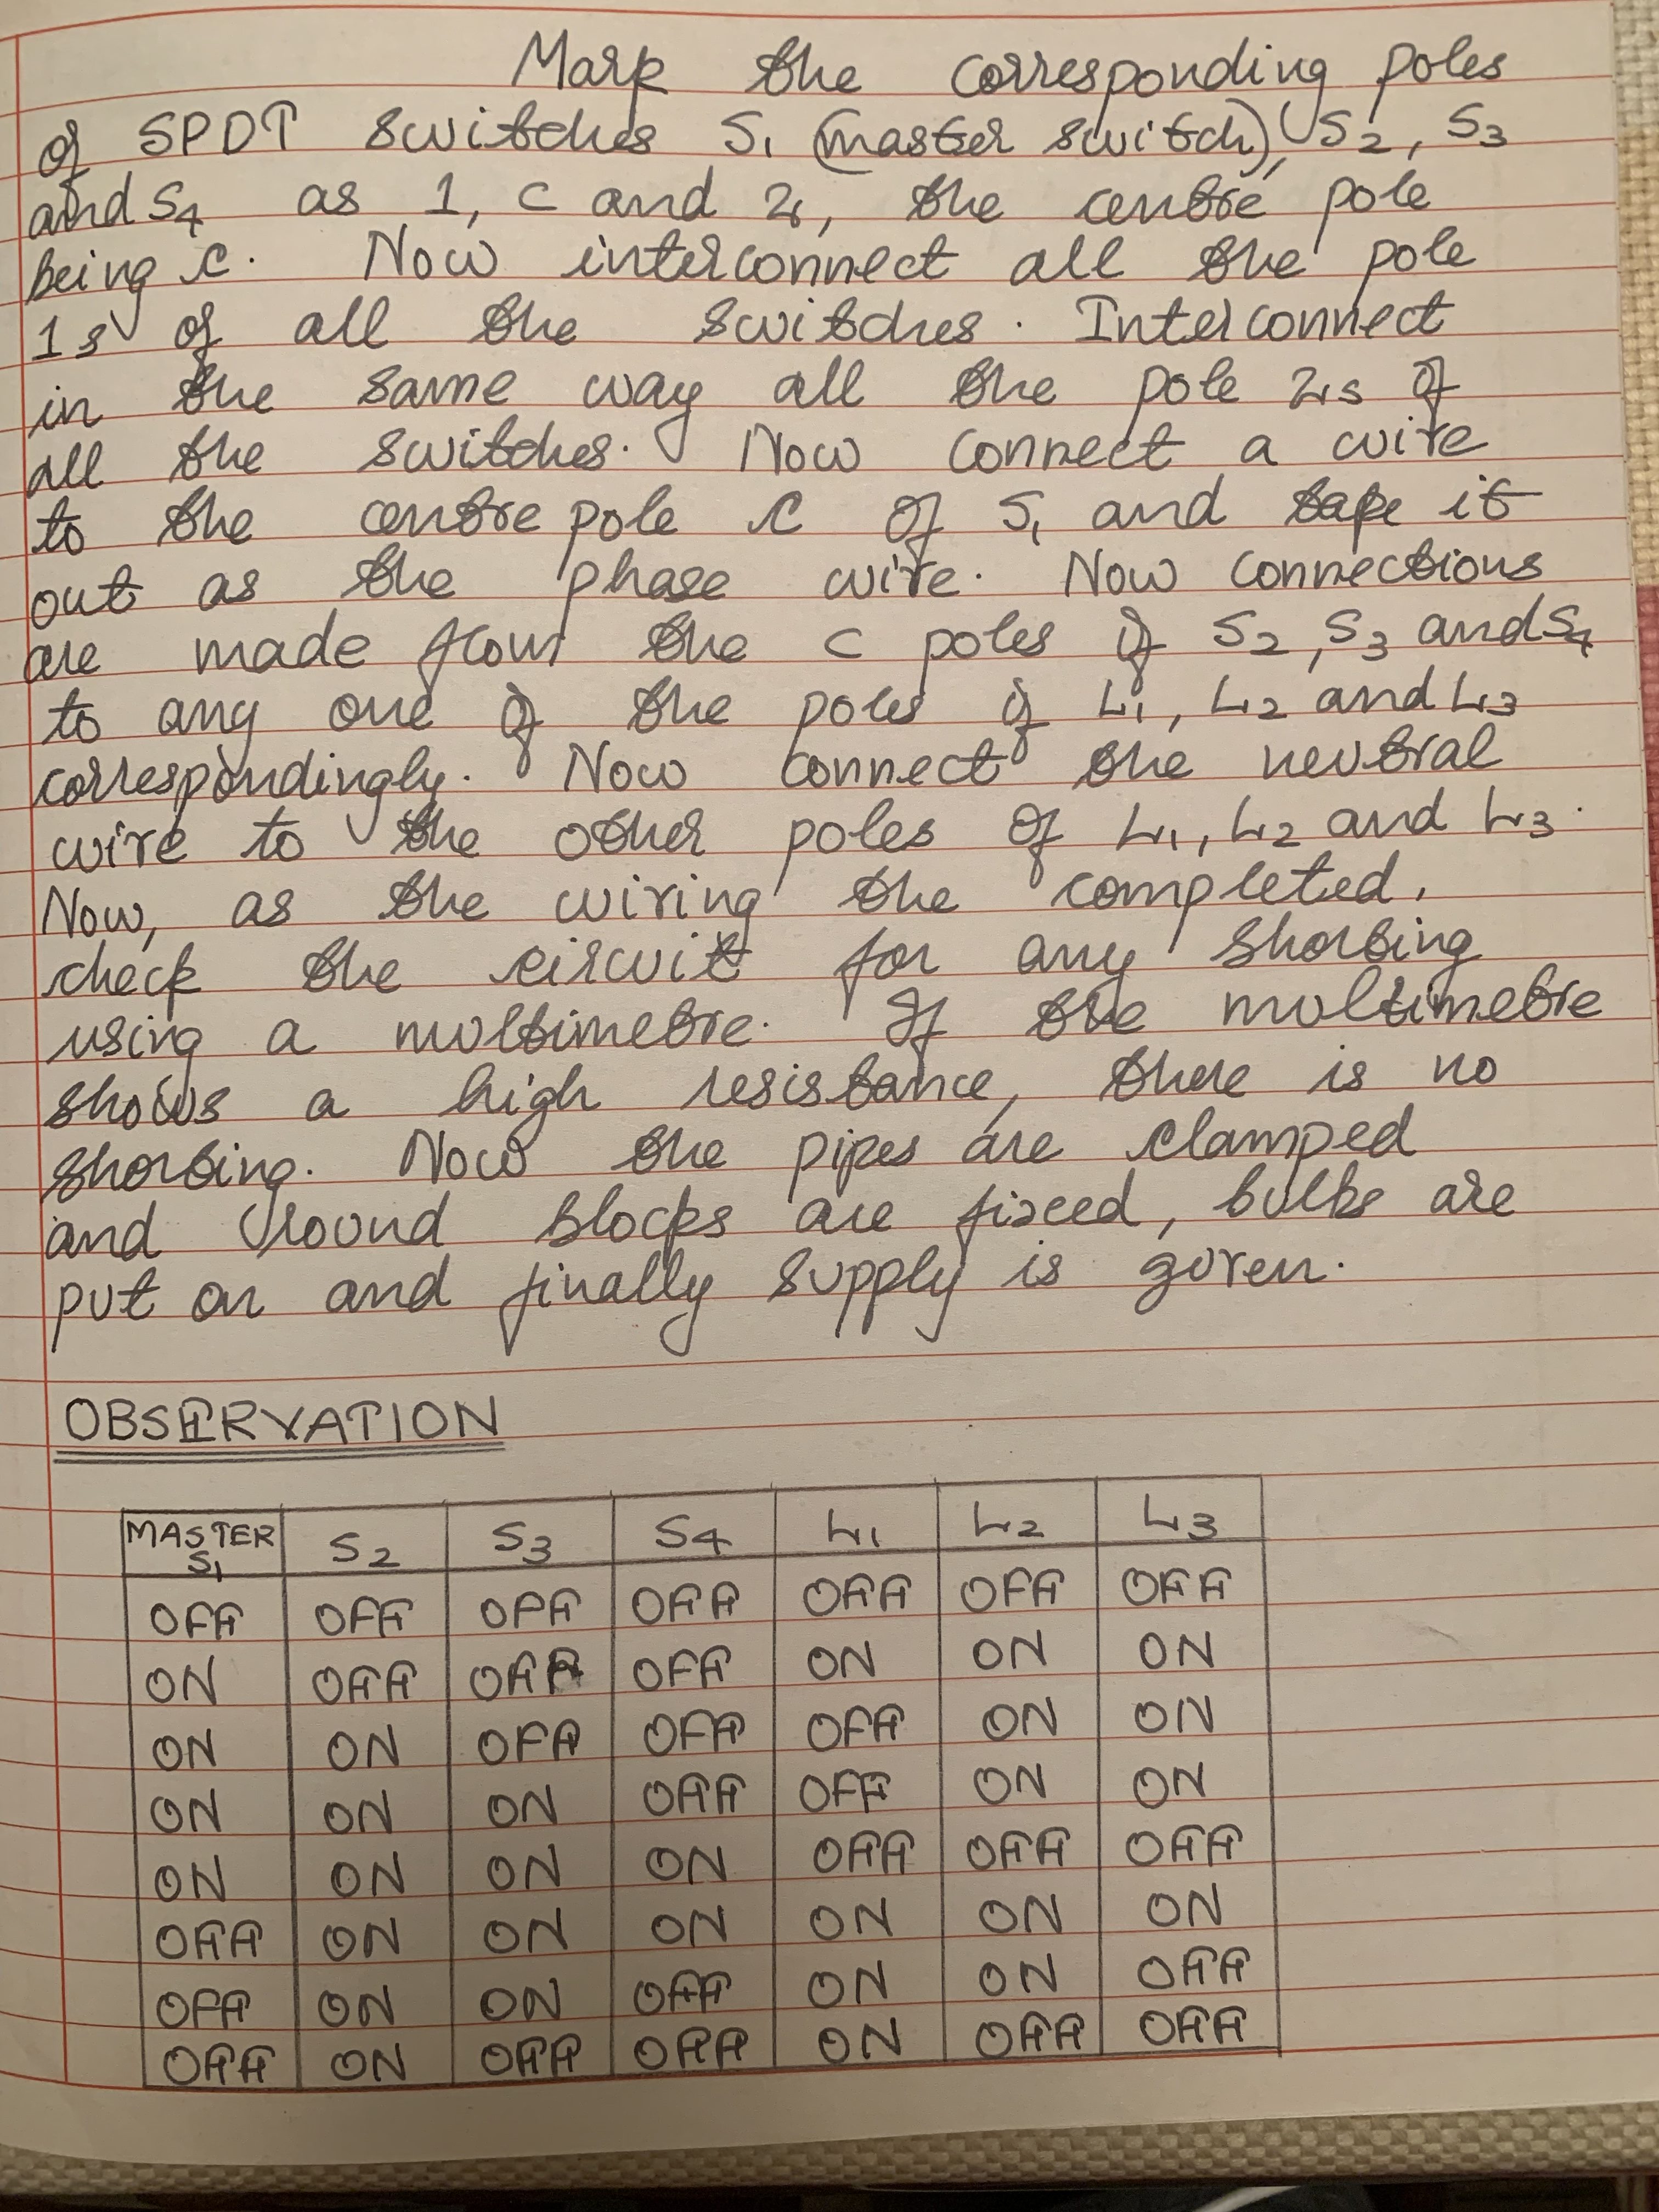 Mark the corresponding poles
of SPDT switches S1 (master switch), S2, S3
and S4 as 1, C and 2, the centre pole
being C. Now interconnect all the pole
1s of all the switches. Interconnect
in the same way all the pole 2s of
all the switches. Now connect a wire
to the centre pole C of S1 and take it
out as the phase wire. Now connections
are made from the C poles of S2, S3 and S4
to any one of the poles of L1, L2 and L3
correspondingly. Now connect the neutral
wire to the other poles of L1, L2 and L3.
Now, as the wiring the completed,
check the circuit for any shorting
using a multimetre. If the multimetre
shows a high resistance, there is no
shorting. Now the pipes are clamped
and round blocks are fixed, bulbs are
put on and finally supply is given.
OBSERVATION
MASTER S1 S2 S3 S4 L1 L2 L3
OFF OFF OFF OFF OFF OFF OFF
ON OFF OFF OFF ON ON ON
ON ON OFF OFF OFF ON ON
ON ON ON OFF OFF ON ON
ON ON ON ON OFF OFF OFF
OFF ON ON ON ON ON ON
OFF ON ON OFF ON ON OFF
OFF ON OFF OFF ON OFF OFF